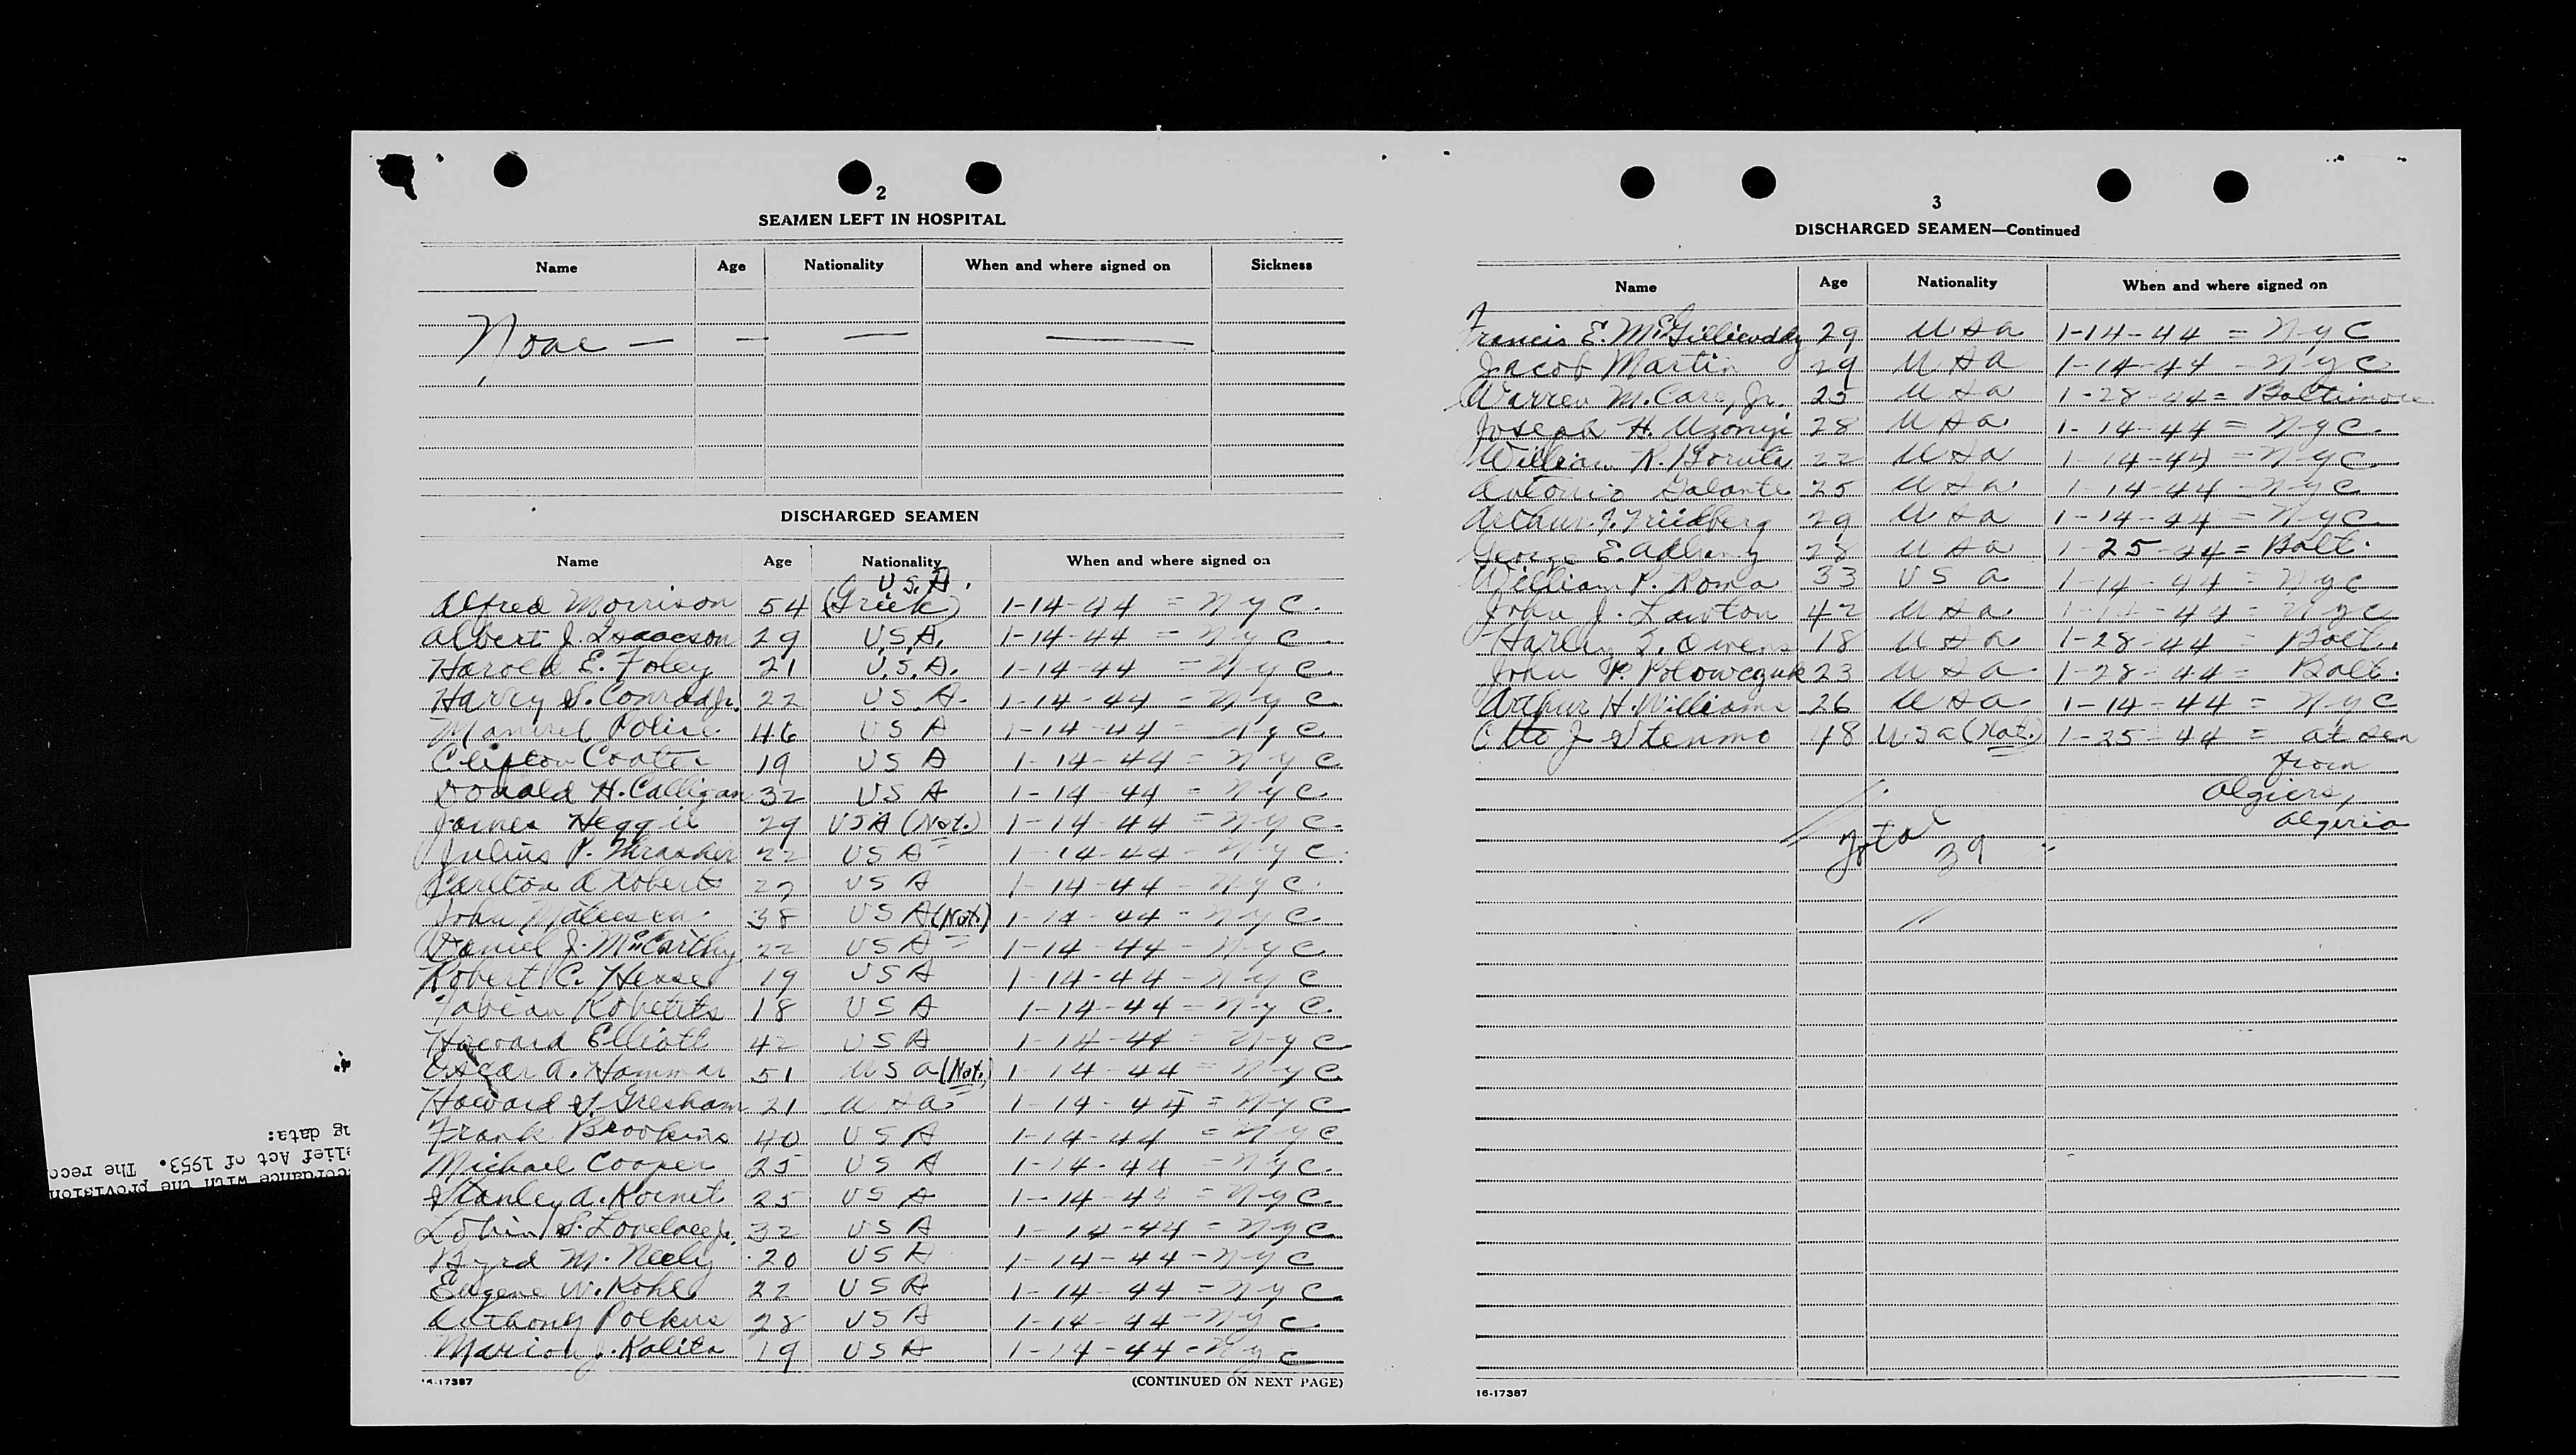 2
SEAMEN LEFT IN HOSPITAL
Name Age Nationality When and where signed on Sickness
None — — — —
DISCHARGED SEAMEN
Name Age Nationality When and where signed on
U.S.A.
Alfred Morrison 54 (Greek) 1-14-44 = N Y C.
Albert J. Isaacson 29 U.S.A. 1-14-44 = N Y C.
Harold E. Foley 21 U.S.A. 1-14-44 = N Y C.
Harvey S. Conrad Jr. 22 U S A. 1-14-44 = N Y C.
Manuel 46 U S A 1-14-44 = N Y C.
Clifton 19 U S A 1-14-44 = N Y C.
Donald H. Calligan 32 U S A 1-14-44 = N Y C.
James Heggie 29 U S A (Nat.) 1-14-44 = N Y C.
Julius P. Thrasher 22 U S A 1-14-44 - N Y C.
Carlton A Roberts 27 U S A 1-14-44 - N Y C.
John 38 U S A (Nat.) 1-14-44 - N Y C.
Daniel J. McCarthy 22 U S A 1-14-44 - N Y C.
Robert C. 19 U S A 1-14-44 - N Y C
Fabian 18 U S A 1-14-44 = N Y C.
Howard Elliott 42 U S A 1-14-44 = N Y C
Oscar A. Hammar 51 U S A (Nat.) 1-14-44 = N Y C
Howard S. Gresham 21 U S A 1-14-44 = N Y C
Frank Brookins 40 U S A 1-14-44 = N Y C
Michael Cooper 25 U S A 1-14-44 = N Y C.
Stanley A. Kornet 25 U S A 1-14-44 = N Y C.
S. Lovelace Jr. 32 U S A 1-14-44 = N Y C
Byrd M. Neely 20 U S A 1-14-44 - N Y C
Eugene W. Kohl 22 U S A 1-14-44 = N Y C
Anthony Polkus 28 U S A 1-14-44 - N Y C.
Marion J. Kalita 19 U S A 1-14-44 - N Y C
16-17387 (CONTINUED ON NEXT PAGE)
3
DISCHARGED SEAMEN—Continued
Name Age Nationality When and where signed on
Francis E. 29 U S A 1-14-44 = N Y C
Jacob Martin 29 U S A 1-14-44 - N Y C
Warren M. Care, Jr. 25 U S A 1-28-44 = Baltimore
Joseph H. Uzonyi 28 U S A 1-14-44 = N Y C.
William R. 22 U S A 1-14-44 = N Y C
Antonio Galante 25 U S A 1-14-44 - N Y C
Arthur J. Friedberg 29 U S A 1-14-44 = N Y C.
George E. 28 U S A 1-25-44 = Balt.
William P. Roma 33 U S A 1-14-44 = N Y C
John J. Lawton 42 U S A. 1-14-44 = N Y C
Harley Owens 18 U S A 1-28-44 = Balt.
John P. Polowczuk 23 U S A 1-28-44 = Balt.
Arthur H. Williams 26 U S A 1-14-44 = N Y C
Otto J Stenmo 48 U S A (Nat.) 1-25-44 = at sea
from
Algiers,
Algeria
Total
39
16-17387
ng data:
elief Act of 1953. The reco
cordance with the provision